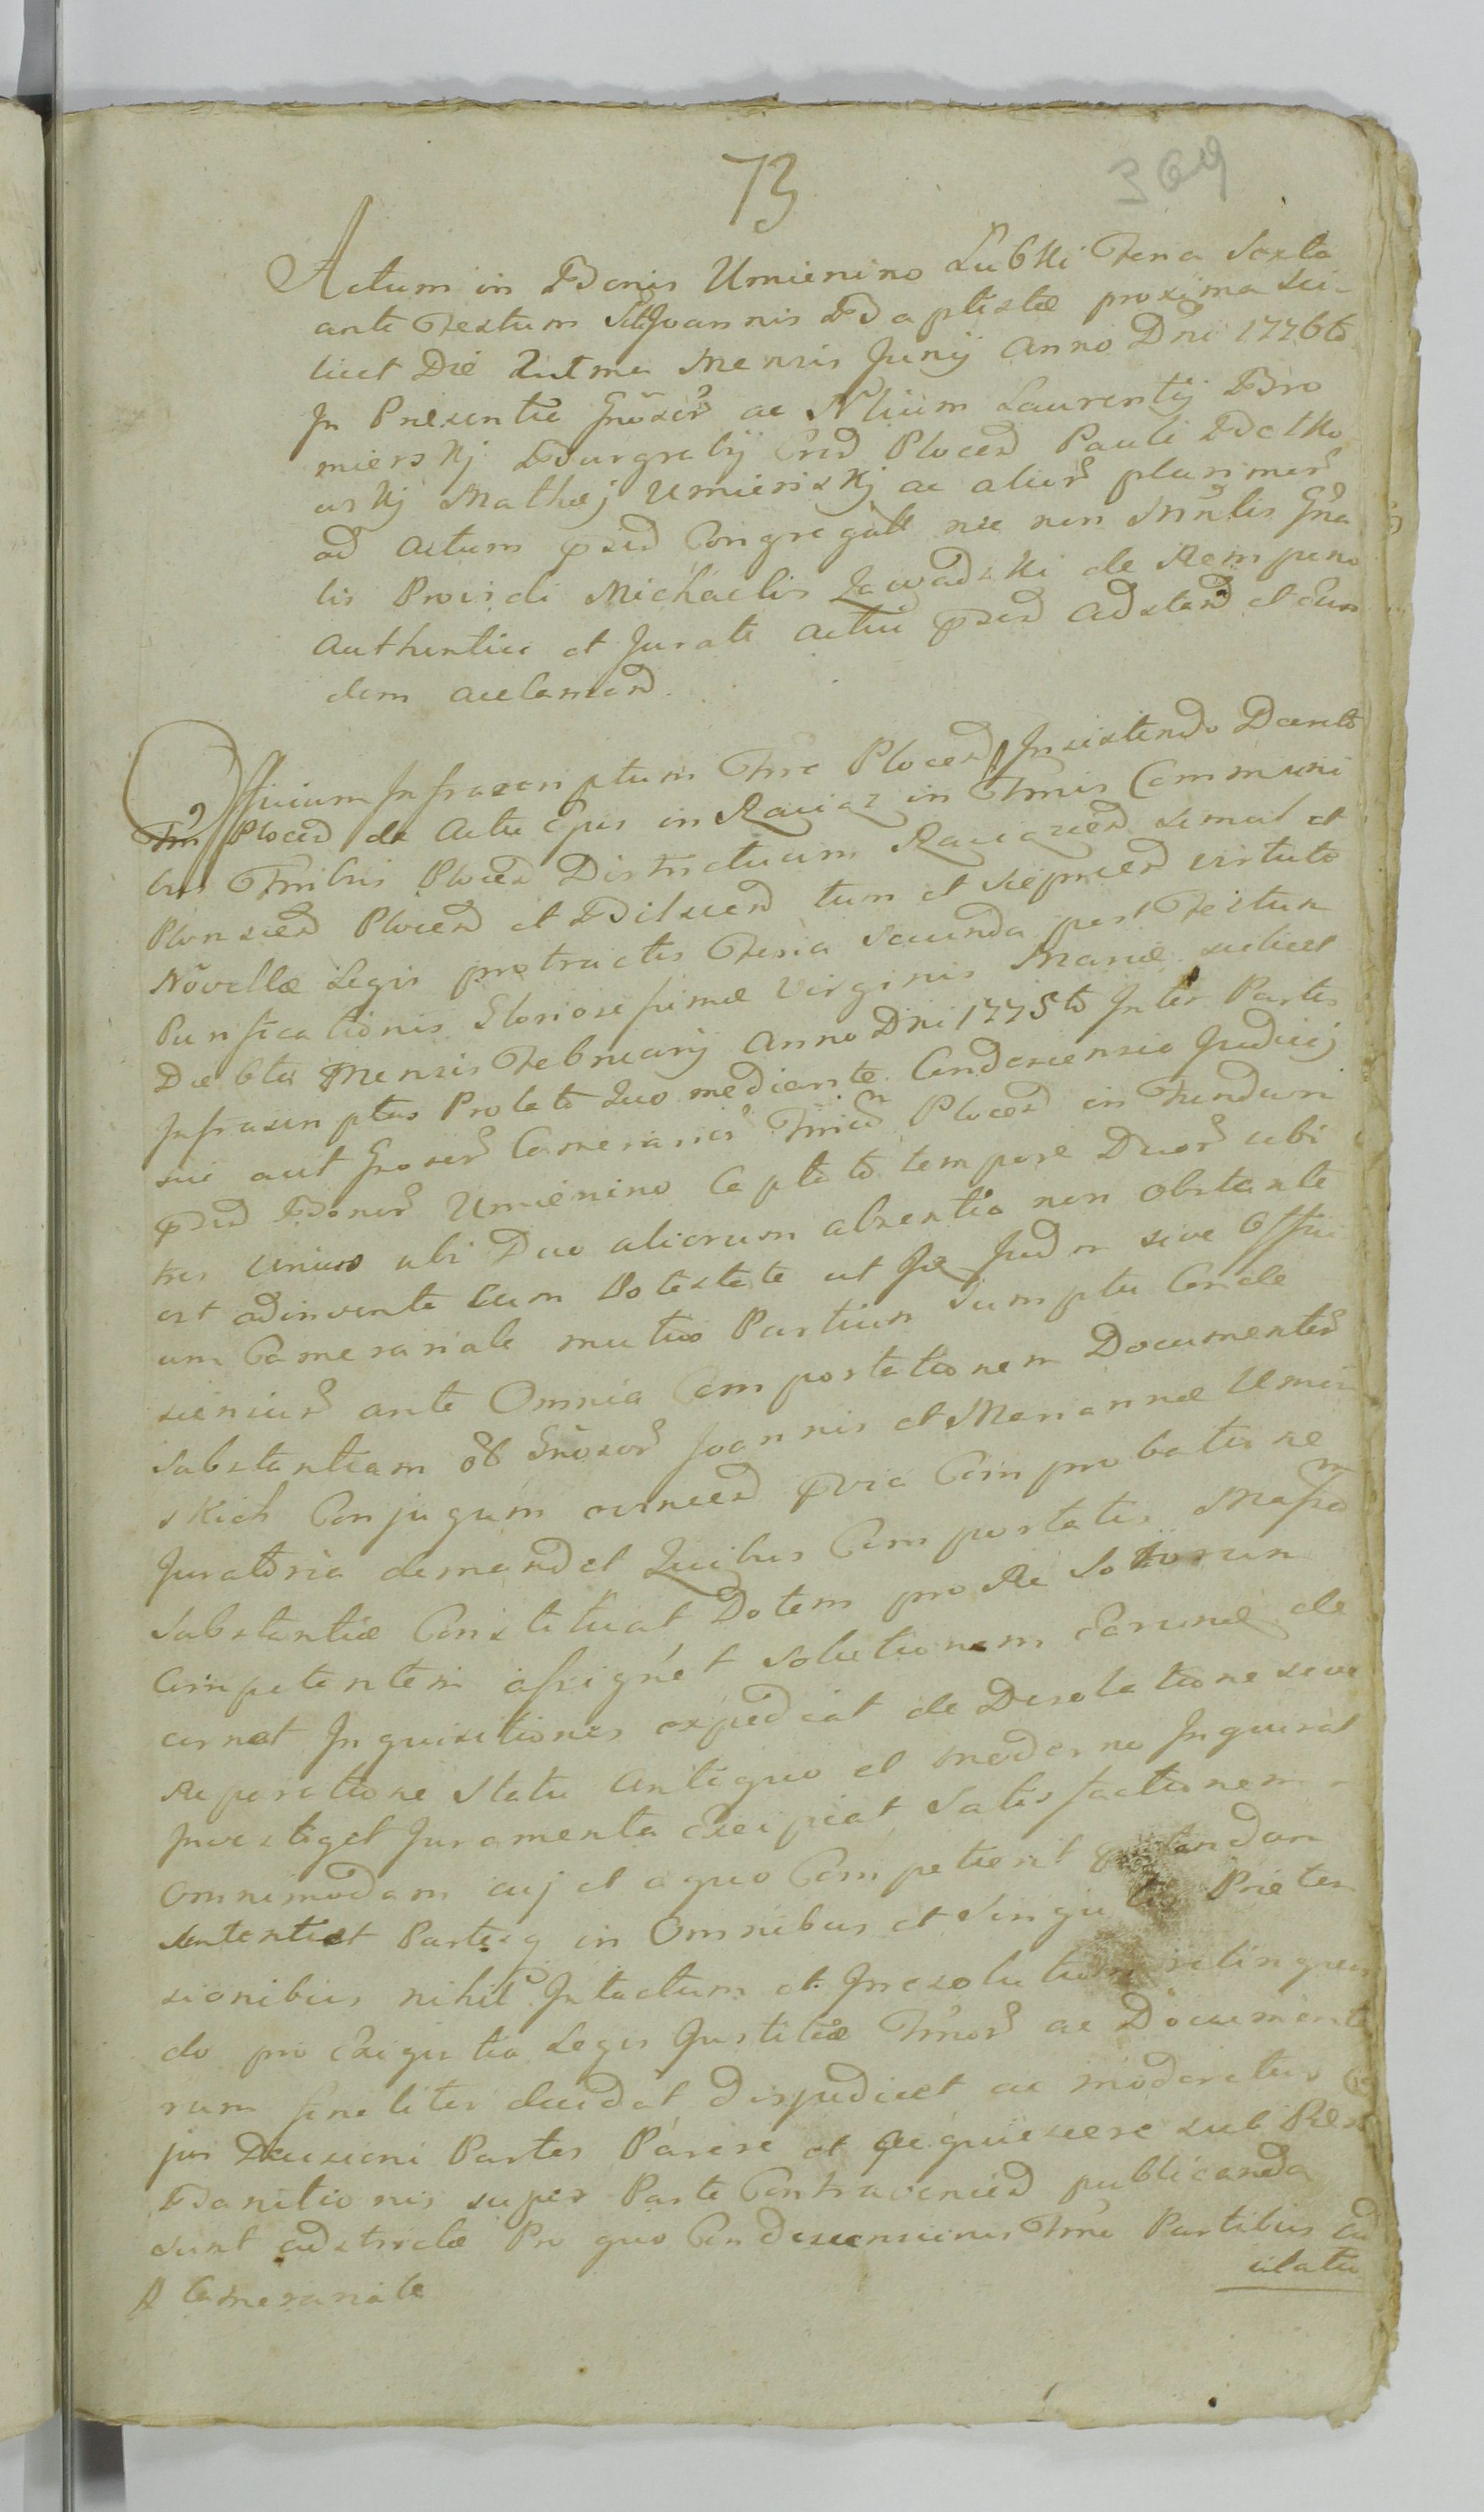 73
369
Actum in Bonis Umienino Łubki Feria Sexta
ante Festum Sti Joannis Baptistæ proxima sci-
licet Die mensis Junij Anno Dni 1776to
In Præsentia Gnosor ac Nlium Laurentij Bro
mierskj Burgrabij Crd Plocen Pauli Betko
wskj Mathæj Umienskj ac alior plurimor
ad Actum Congregatt nec non Mnlis Gna
lis Providi Michaelis Zawadzki de Rempino
Authentici et Jurati Actui adstand et eun
dem acclamand.
Officium Infrascriptum Tnre Plocen Insistendo Dereto
Tnri Plocen de Actu Cpus in Raciąz in Tnnis Communi
bus Tnribus Plocen Districtuum Raciązcen simul et
Plonscen Plocen et Bilscen tum et Sieprcen virtute
Novellæ Legis protractis Feria Secunda post Festum
Purificationis Gloriosissimæ Virginis Mariæ scilicet
Die 6ta Mensis Februarij Anno Dni 1775to Inter Partes
Infrascriptas Prolato Quo mediante Condescensio Judicij
sui aut Gnoser Camerarior Tnrium Plocen in Fundum
Bonor Umienino Captato tempore Duor ubi
tres unius ubi Duo aliorum absentia non obstante
est adinventa Cum Potestate ut Jd Judm sive Offici
um Camerariale mutuo Partium Sumptu Conde
sciensur ante Omnia Comportationem Documentor
Substantiam ob Gnosor Joannis et Mariannæ Umin
skich Conjugum cernced Comprobatione
Juratoria demandet Quibus Comportatis Massam
Substantiæ Constituat Dotem pro Re Sortorum
Competentem assignet Solutionem Earumd de
cernat Inquisitiones expediat de Desolatione sive
Reparatione Statu Antiquo et moderno Inquirat
Investiget Juramenta Excipiat Satisfactionem
Omnimodam cuj et a quo Competierit præstandam
Sententiet Partesq in Omnibus et Singulis Præten
sionibus nihil Intactum et Irresolutum relinquen
do pro Exigentia Legis Justitiæ Tnnor ac Documento
rum finaliter decidat disjudicet ac moderetur
jus Decisioni Partes Parere et Acquiescere sub Pæn
Banitionis super Parte Contravenied publicanda
sunt adstrictæ Pro quo Condescensionis Tnno Partibus ad
ulatu
A Camerariate